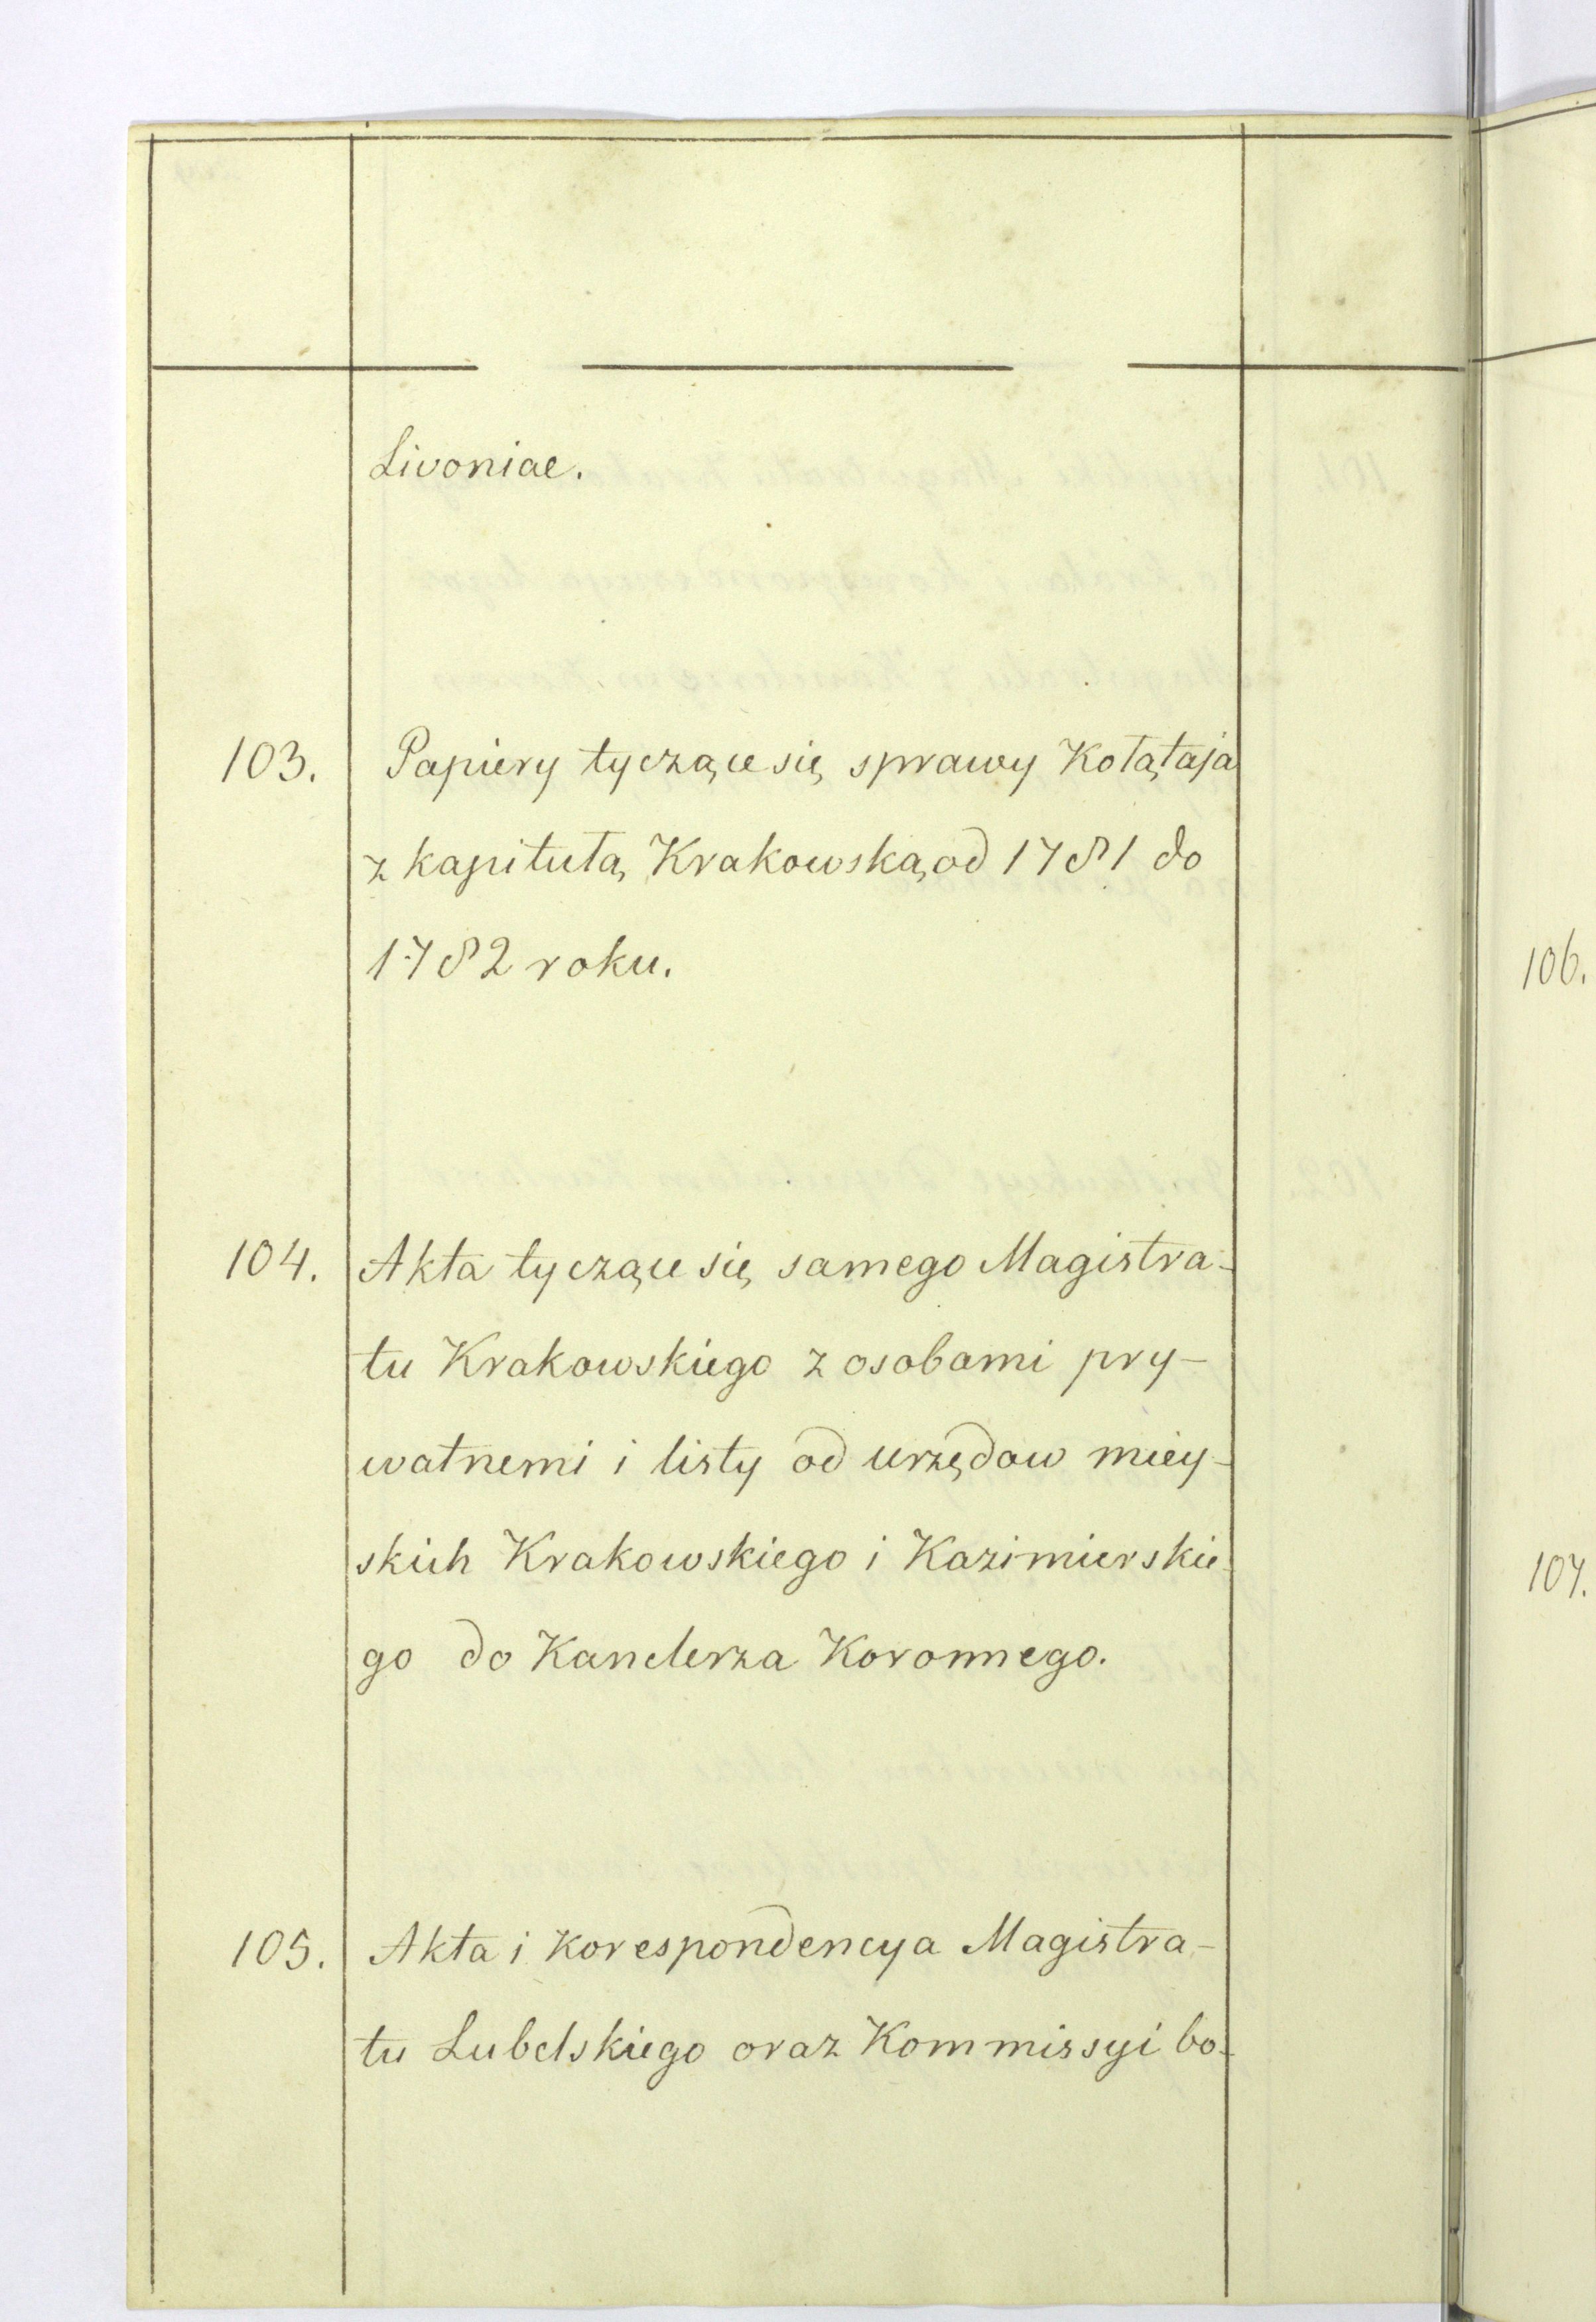 Livoniae.
103. Papiery tyczące się sprawy Kołątaja
z kapitułą Krakowską od 1781 do
1782 roku.
104. Akta tyczące się samego Magistra-
tu Krakowskiego z osobami pry-
watnemi i listy od urzędow miey-
skich Krakowskiego i Kazimierskie
go do Kanclerza Koronnego.
105. Akta i korespondencya Magistra-
tu Lubelskiego oraz Kommissyi bo-
106.
107.